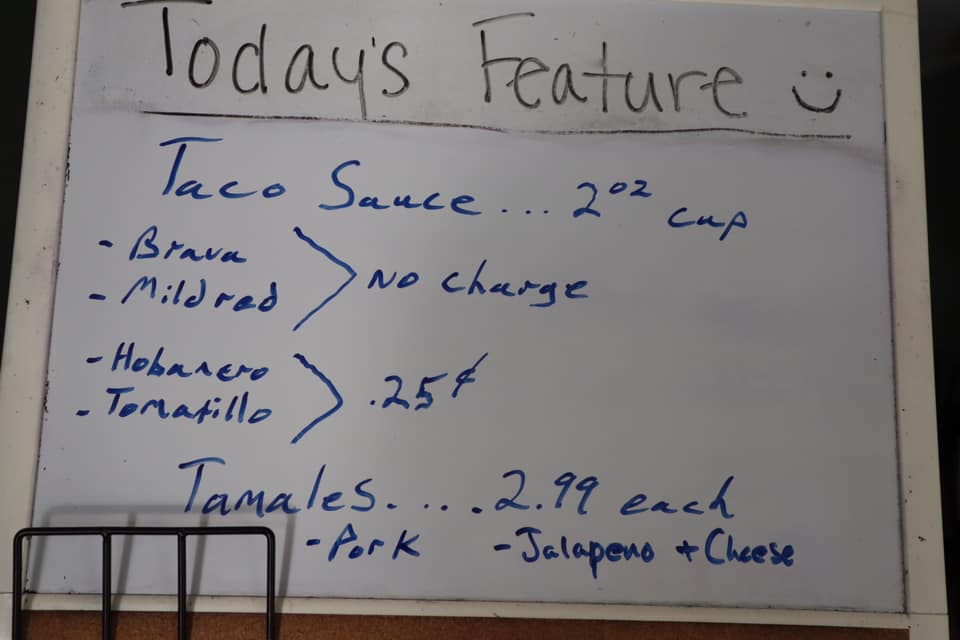 Today's Feature :)
Taco Sauce... 2oz cup
- Brava
- Mildred
No charge
- Hobanero
- Tomatillo
.25¢
Tamales.... 2.99 each
- Pork - Jalapeno + Cheese